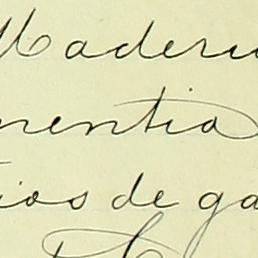 Maderu
mentia
ios de ga